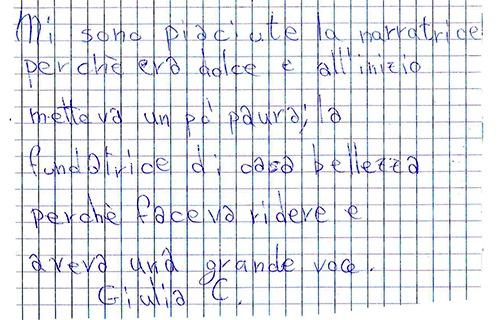 Mi sono piaciute la narratrice
perchè era dolce e all'inizio
metteva un pò paura; la
fundatrice di casa bellezza
perchè faceva ridere e
aveva una grande voce.
Giulia C.